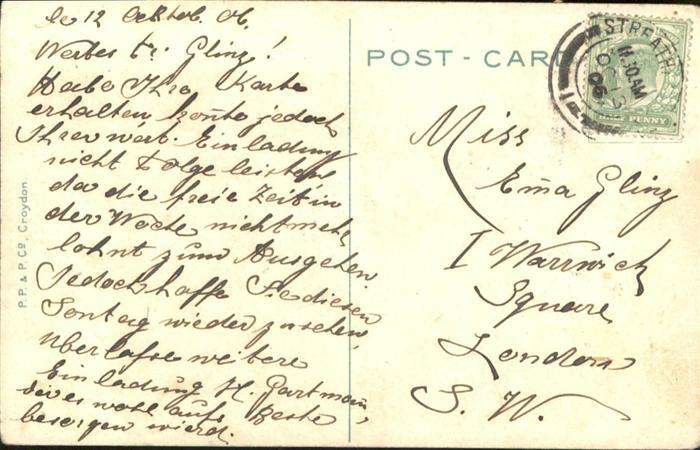 le 12 Oktob. 06.
Wertes Frl. Glinz!
Habe Ihre Karte
erhalten, konnte jedoch
Ihrer wert. Einladung
nicht Folge leisten,
da die freie Zeit in
der Woche nicht mehr
lohnt zum Ausgehen.
Jedoch hoffe Sie diesen
Sontag wieder zu sehen,
überlasse weitere
Einladung H. Hartmann,
der es wohl aufs Beste
besorgen wierd.
P.P. & P. Co, Croydon
POST - CARD
STREATH
11.30 AM
OC 13
06
HALF PENNY
Miss
Em̄a Glinz
I Warwick
Square
London
S. W.